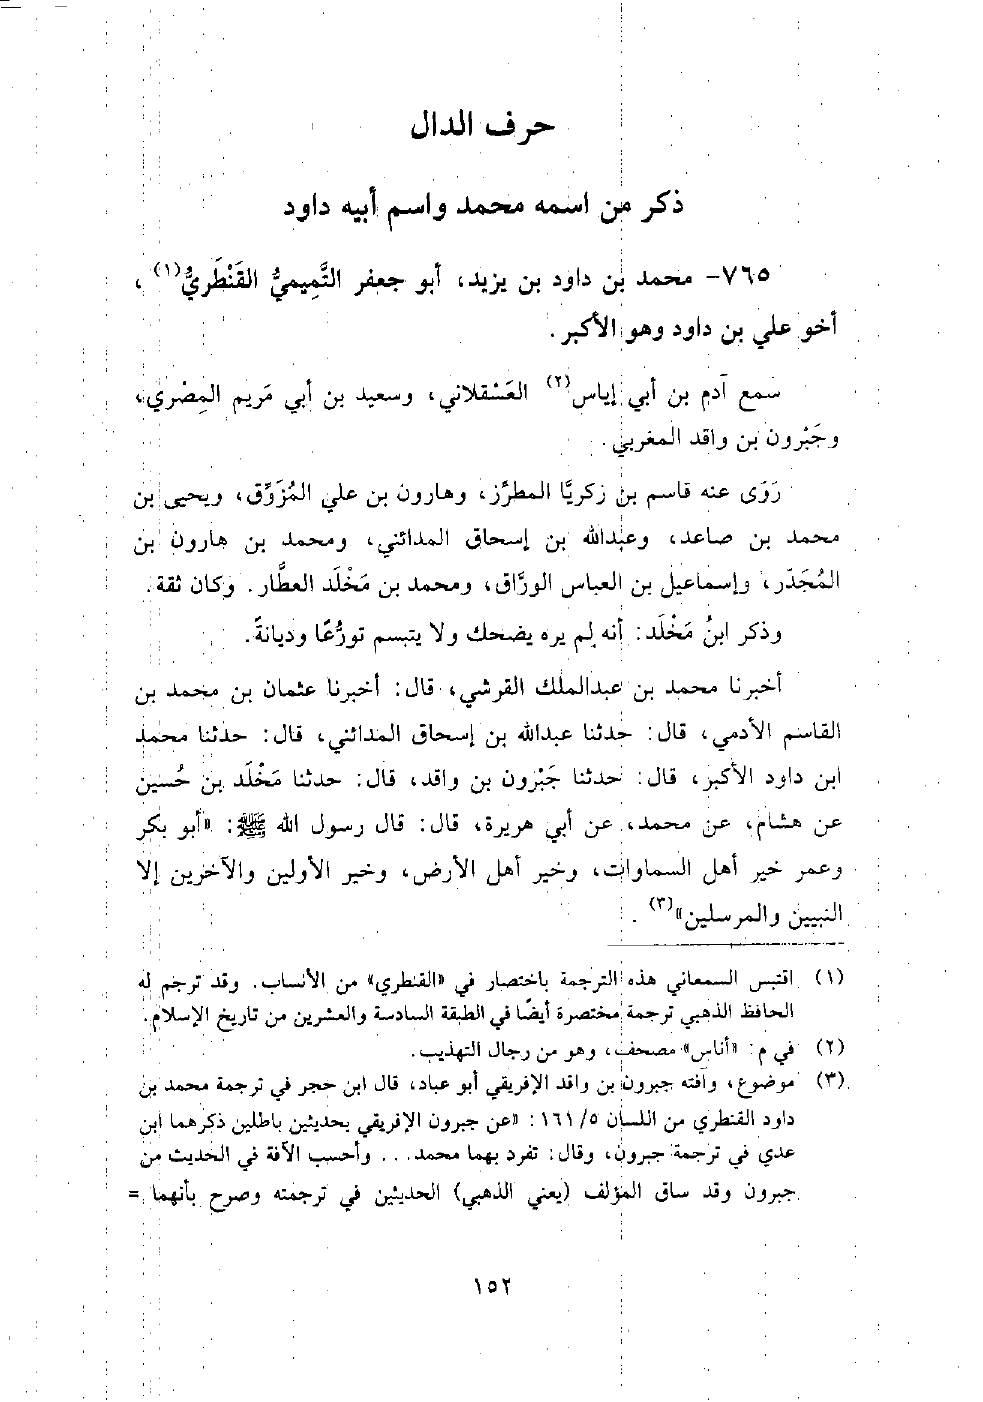 حرف الدال
ذكر من اسمه محمد واسم أبيه داود
٧٦٥- محمد بن داود بن يزيد، أبو جعفر التَّمِيميُّ القَنْطَريُّ(١)،
أخو علي بن داود وهو الأكبر.
سمع آدم بن أبي إياس(٢) العَسْقلاني، وسعيد بن أبي مَريم المِصْري،
وجَبْرون بن واقد المغربي.
رَوَى عنه قاسم بن زكريَّا المطرِّز، وهارون بن علي المُزَوَّق، ويحيى بن
محمد بن صاعد، وعبدالله بن إسحاق المدائني، ومحمد بن هارون بن
المُجَدَّر، وإسماعيل بن العباس الورَّاق، ومحمد بن مَخْلَد العطَّار. وكان ثقة.
وذكر ابنُ مَخْلَد: أنه لم يره يضحك ولا يتبسم تورُّعًا وديانةً.
أخبرنا محمد بن عبدالملك القرشي، قال: أخبرنا عثمان بن محمد بن
القاسم الأدمي، قال: حدثنا عبدالله بن إسحاق المدائني، قال: حدثنا محمد
ابن داود الأكبر، قال: حدثنا جَبْرون بن واقد، قال: حدثنا مَخْلَد بن حُسين
عن هشام، عن محمد، عن أبي هريرة، قال: قال رسول الله ﷺ: «أبو بكر
وعمر خير أهل السماوات، وخير أهل الأرض، وخير الأولين والآخرين إلا
النبيين والمرسلين»(٣).
(١) اقتبس السمعاني هذه الترجمة باختصار في «القنطري» من الأنساب. وقد ترجم له
الحافظ الذهبي ترجمة مختصرة أيضًا في الطبقة السادسة والعشرين من تاريخ الإسلام.
(٢) في م: «أناس» مصحف، وهو من رجال التهذيب.
(٣) موضوع، وآفته جبرون بن واقد الإفريقي أبو عباد، قال ابن حجر في ترجمة محمد بن
داود القنطري من اللسان ٥/ ١٦١: «عن جبرون الإفريقي بحديثين باطلين ذكرهما ابن
عدي في ترجمة جبرون، وقال: تفرد بهما محمد... وأحسب الآفة في الحديث من
جبرون وقد ساق المؤلف (يعني الذهبي) الحديثين في ترجمته وصرح بأنهما =
١٥٢